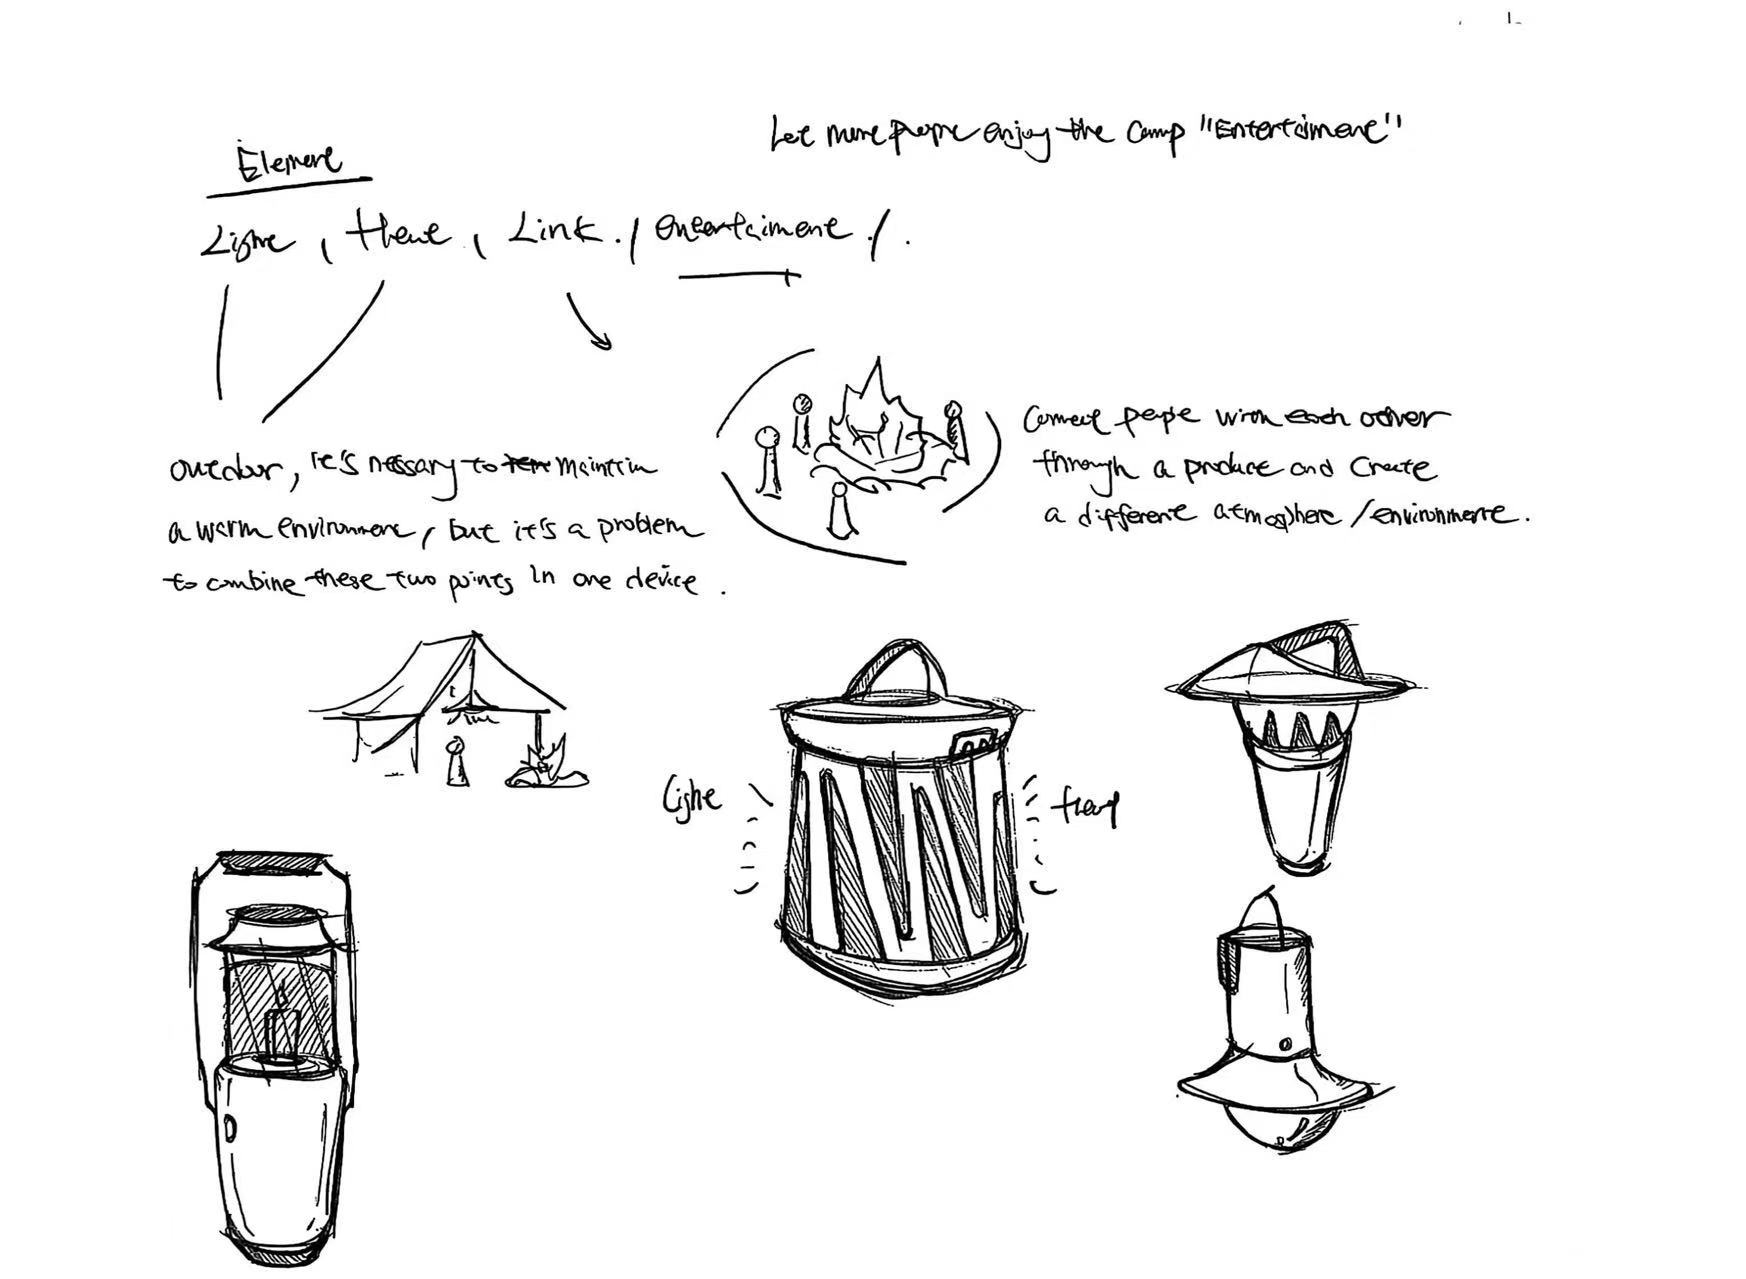 Let more people enjoy the camp "Entertaiment"
Element
Light, heat, Link. / entertaiment / .
outdoor, it's nessary to maintain
a warm environment, but it's a problem
to combine these two points in one device .
Connect people with each other
through a product and create
a different atmosphere / environment .
Light